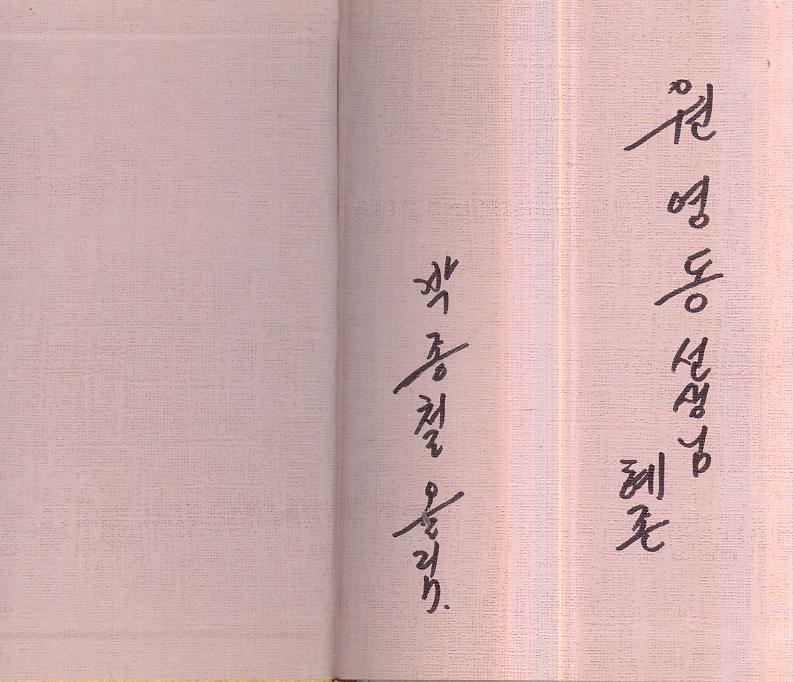 원영동 선생님
혜존
박종철 올림.